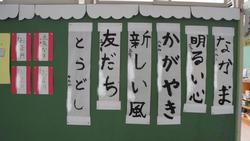 なかま
明るい心
かがやき
新しい風
友だち
とうどし